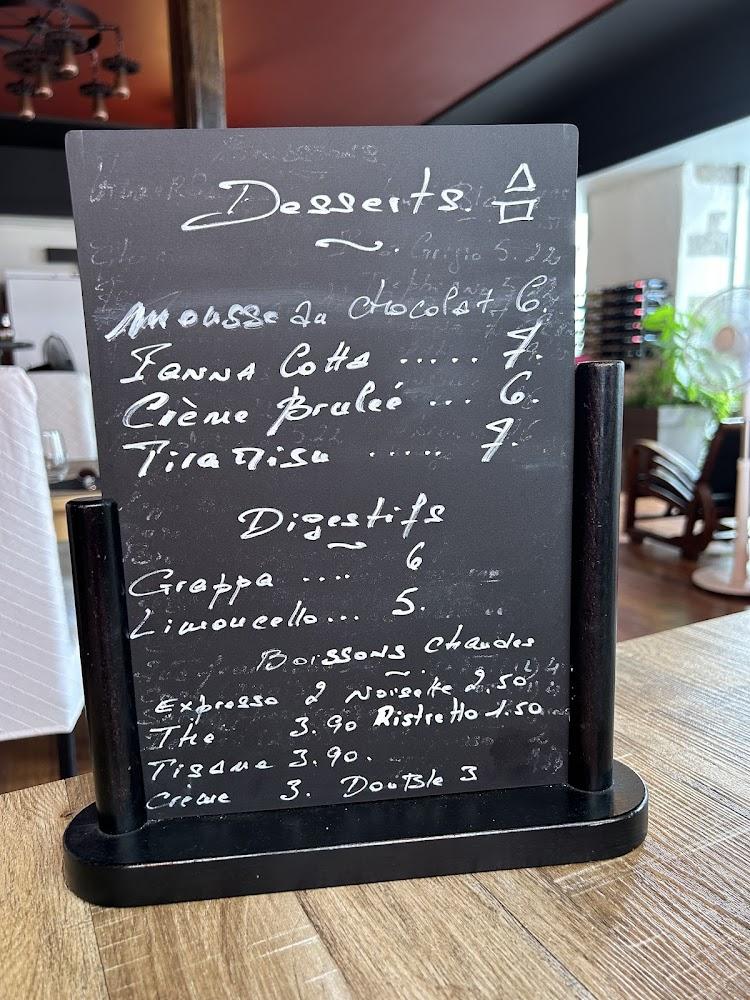 Desserts
Mousse au chocolat 6.
Panna Cotta ..... 7.
Crème Bruleé ... 6.
Tiramisu ..... 7.
Digestifs
Grappa .... 6
Limoncello... 5.
Boissons chaudes
Expresso 2 Noisette 2.50
Thé 3.90 Ristretto 1.50
Tisane 3.90.
Crème 3. Double 3